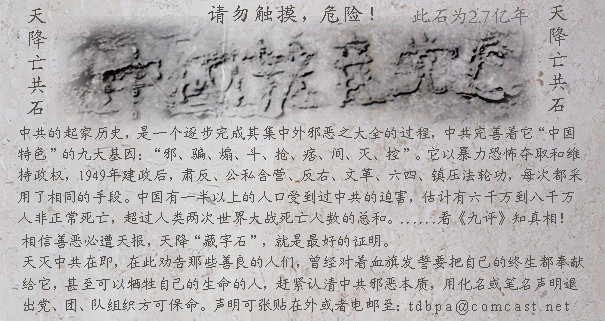 请勿触摸，危险！
此石为2.7亿年
天降亡共石
天降亡共石
中国共产党亡
中共的起家历史，是一个逐步完成其集中外邪恶之大全的过程，中共完善着它“中国
特色”的九大基因：“邪、骗、煽、斗、抢、痞、间、灭、控”。它以暴力恐怖夺取和维
持政权，1949年建政后，肃反、公私合营、反右、文革、六四、镇压法轮功，每次都采
用了相同的手段。中国有一半以上的人口受到过中共的迫害，估计有六千万到八千万
人非正常死亡，超过人类两次世界大战死亡人数的总和。……看《九评》知真相！
相信善恶必遭天报，天降“藏字石”，就是最好的证明。
天灭中共在即，在此劝告那些善良的人们，曾经对着血旗发誓要把自己的终生都奉献
给它，甚至可以牺牲自己的生命的人，赶紧认清中共邪恶本质，用化名或笔名声明退
出党、团、队组织方可保命。声明可张贴在外或者电邮至：tdbpa@comcast.net